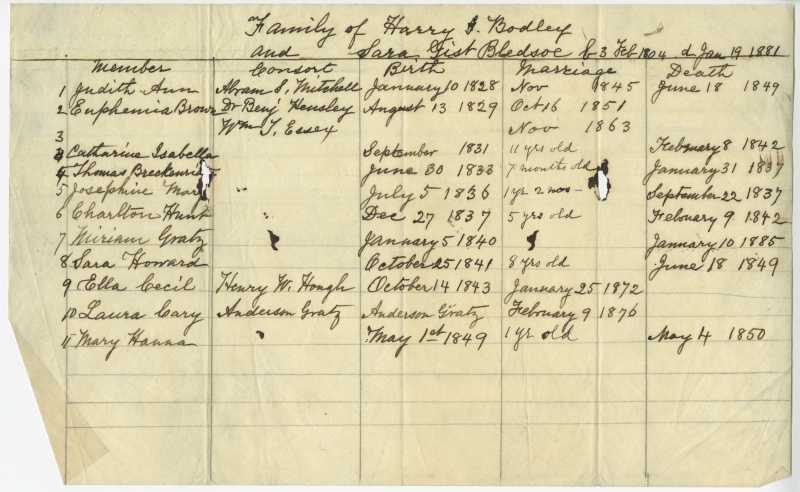 Family of Harry I. Bodley
and Sara Gist Bledsoe b 3 Feb 1804 d Jan 19 1881
Member Consort Birth Marriage Death
1 Judith Ann Abram S. Mitchell January 10 1828 Nov 1845 June 18 1849
2 Euphemia Brown Dr Benj Hensley August 13 1829 Oct 16 1851
3 Wm T. Essex Nov 1863
3 Catharine Isabella September 1831 11 yrs old February 8 1842
4 Thomas Breckenridge June 30 1833 7 months old January 31 1837
5 Josephine Mary " July 5 1836 1 yr 2 mos - September 22 1837
6 Charlton Hunt " Dec 27 1837 5 yrs old February 9 1842
7 Miriam Gratz January 5 1840 January 10 1885
8 Sara Howard October 25 1841 8 yrs old June 18 1849
9 Ella Cecil Henry W. Hough October 14 1843 January 25 1872
10 Laura Cary Anderson Gratz Anderson Gratz February 9 1876
11 Mary Hanna May 1st 1849 1 yr old May 4 1850